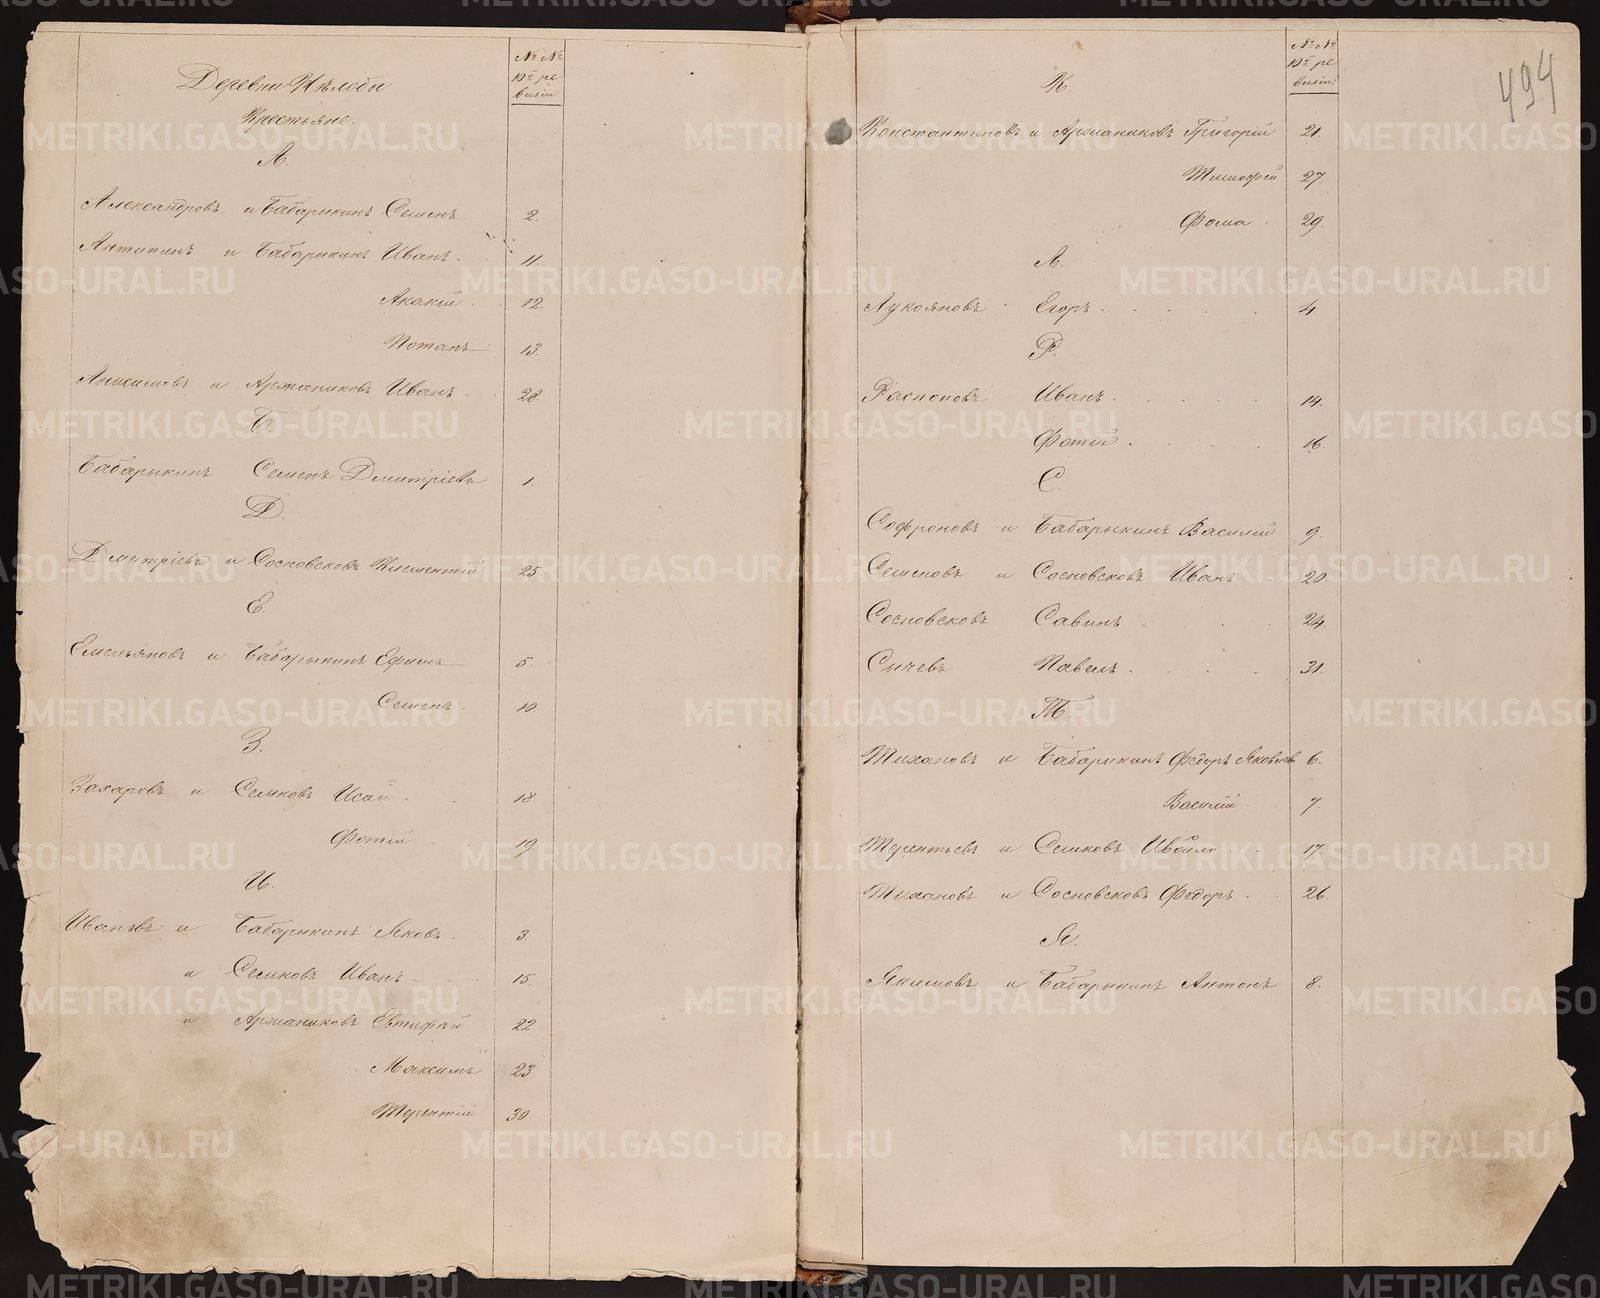 № №
10й ре
визіи
Деревни
Крестьяне.
А.
Александровъ и Бабарыкинъ Семенъ 2.
Антипинъ и Бабарыкинъ Иванъ. 11.
Акакій 12.
Потапъ 13.
Анисимовъ и Аржаниковъ Иванъ. 28.
Б.
Бабарыкинъ Семенъ Дмитріевъ 1.
Д.
Дмитріевъ и Сосновсковъ Климентій 25.
Е.
Емельяновъ и Бабарыкинъ Ефимъ 5.
Семенъ. 10.
З.
Захаровъ и Семковъ Исай. 18
Фотій 19.
И.
Ивановъ и Бабарыкинъ Яковъ. 3.
и Семковъ Иванъ. 15.
и Аржаниковъ Евтифѣй 22.
Максимъ 23.
Терентій 30.
494
№ №
10й ре
визіи
К.
Константиновъ и Аржаниковъ Григорій 21.
Тимофей 27.
Фома 29.
Л.
Лукояновъ Егоръ. 4
Р.
Распоповъ Иванъ. 14.
Фотій. 16.
С.
Софроновъ и Бабарыкинъ Василій 9.
Семеновъ и Сосновсковъ Иванъ 20.
Сосновсковъ Савинъ. 24.
Сычевъ Павелъ. 31.
Т.
Тихановъ и Бабарыкинъ Федоръ Яковлевъ 6.
Василій 7.
Терентьевъ и Семковъ 17.
Тихановъ и Сосновсковъ Федоръ. 26.
Я.
Якимовъ и Бабарыкинъ Антонъ 8.
METRIKI.GASO-URAL.RU